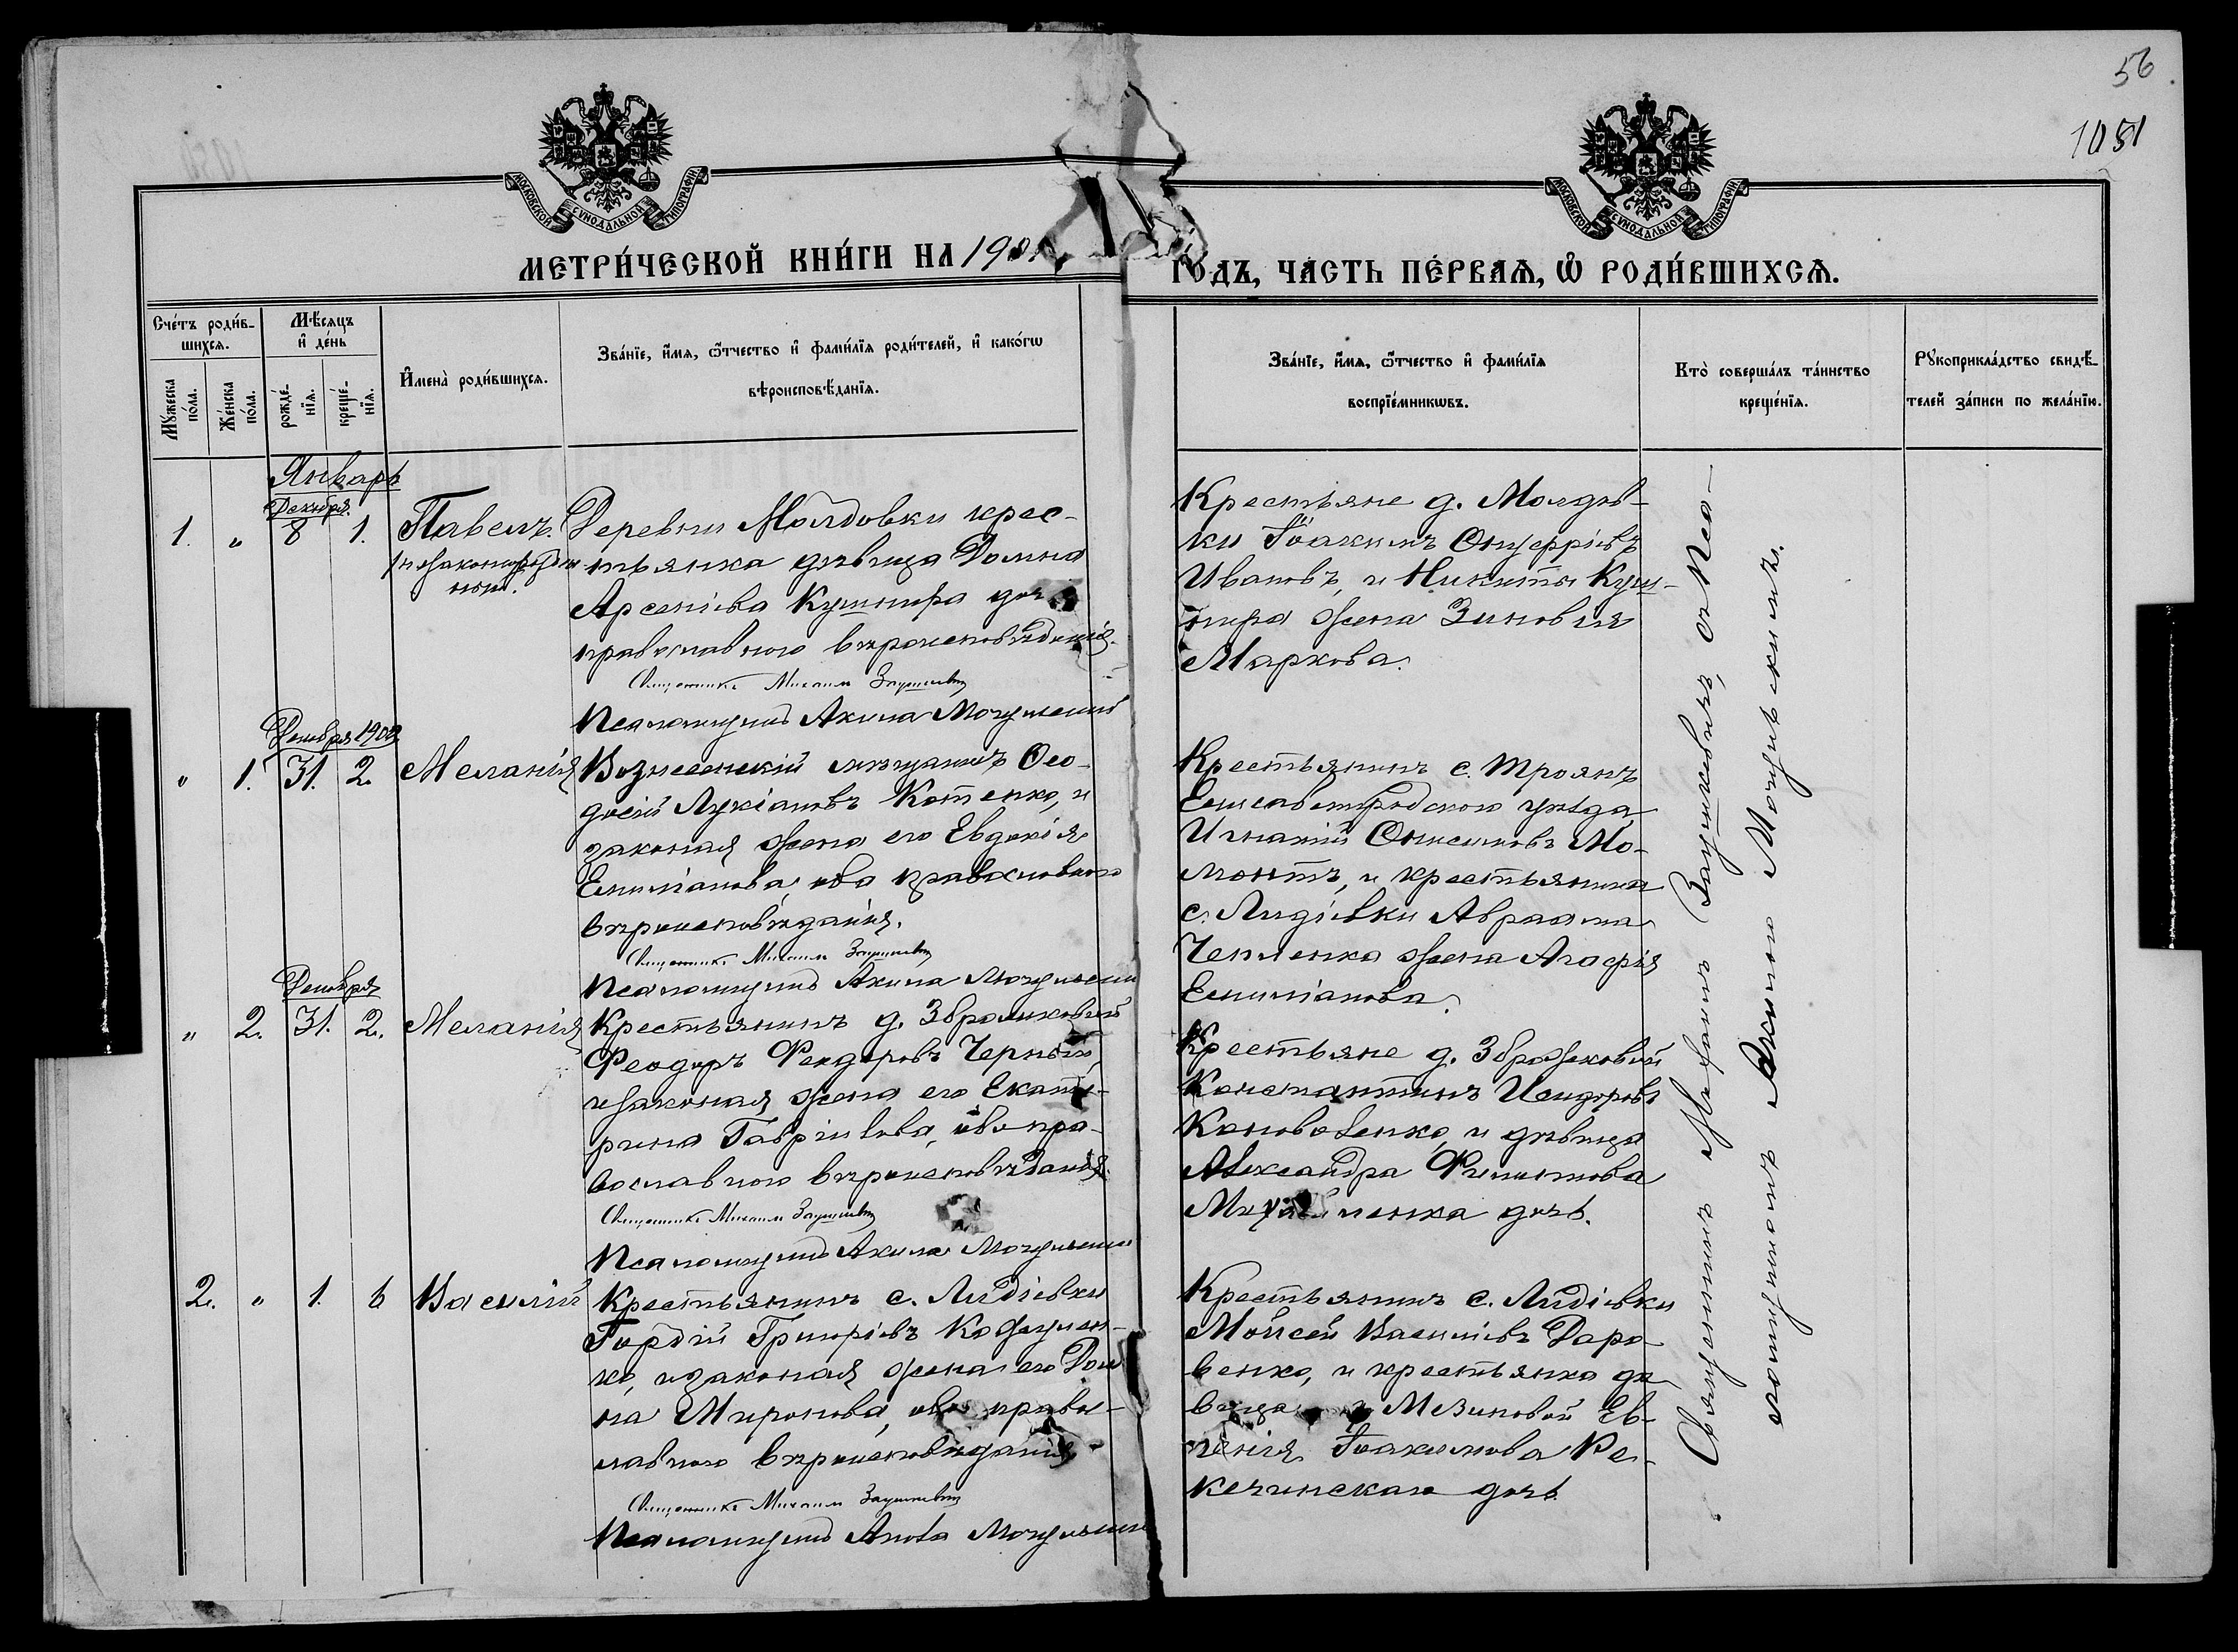 56
1051
МОСКОВСКОЙ СѴНОДАЛЬНОЙ ТИПОГРАФІИ
МОСКОВСКОЙ СѴНОДАЛЬНОЙ ТИПОГРАФІИ
МЕТРИ́ЧЕСКОЙ КНИ́ГИ НА 1901
ГОДЪ, ЧА́СТЬ ПЕ́РВАѦ, Ѡ҆ РОДИ́ВШИХСѦ.
Сче́тъ роди́в-
шихсѧ.
Мꙋ́жеска
по́ла.
Же́нска
по́ла.
Мѣ́сѧцъ
и҆ де́нь
рожде́-
нїѧ.
креще́-
нїѧ.
И҆мена̀ роди́вшихсѧ.
Зва́нїе, и҆́мѧ, ѻ҆́тчество и҆ фами́лїѧ роди́телей, и҆ како́гѡ
вѣроисповѣ́данїѧ.
Зва́нїе, и҆́мѧ, ѻ҆́тчество и҆ фами́лїѧ
воспрїе́мникѡвъ.
Кто̀ соверша́лъ та́инство
креще́нїѧ.
Рꙋкоприкла́дство свидѣ́-
телей за́писи по жела́нїю.
Январь
Декабря.
1. " 8 1. Павелъ.
незаконнорожден
ный.
Деревни Молдовки крес-
тьянка дѣвица Домна
Арсеніева Кушнира дочь
православного вѣроисповѣданія.
Священникъ Михаилъ Заушкевичъ
Псаломщикъ Акила Мочульскій
Крестьяне д. Молдов-
ки Іоакимъ Онуфріевъ
Ивановъ, и Никиты Куш-
нира жена Зиновія
Маркова.
Декабря 1900
" 1. 31. 2. Меланія
Вознесенскій мѣщанинъ Ѳео-
досій Лукіановъ Котенко, и
законая жена его Евдокія
Емиліанова, оба православного
вѣроисповѣданія.
Священникъ Михаилъ Заушкевичъ
Псаломщикъ Акила Мочульскій
Крестьянинъ с. Троянъ
Елисаветградского уѣзда
Игнатій Онисимовъ Мо-
монтъ, и крестьянина
с. Лидіевки Авраама
Чепленка жена Агафія
Емиліанова.
Декабря
" 2. 31. 2. Меланія
Крестьянинъ д. Збрамковой
Феодоръ Феодоровъ Черный,
и законая жена его Екате-
рина Гавріилова, обо пра-
вославного вѣроисповѣданія.
Священникъ Михаилъ Заушкевичъ
Псаломщикъ Акила Мочульскій
Крестьяне д. Зброжековой
Константинъ Исидоровъ
Коноваленко, и дѣвица
Александра Филиппова
дочь.
2. " 1. 6 Василій
Крестьянинъ с. Лидіевки
Гордій Григоріевъ Кожушен-
ко, и законая жена его Дом
на Миронова, обо право-
славного вѣроисповѣданія
Священникъ Михаилъ Заушкевичъ
Псаломщикъ Акила Мочульскій
Крестьянинъ с. Лидіевки
Мойсей Василіевъ Даро-
венко, и крестьянка дѣ
вица Мезиновой Ев-
генія Іоакимова Ре-
кечинская дочь
Священникъ Михаилъ Заушкевичъ, съ Пса-
ломщикомъ Акилою Мочульскимъ.